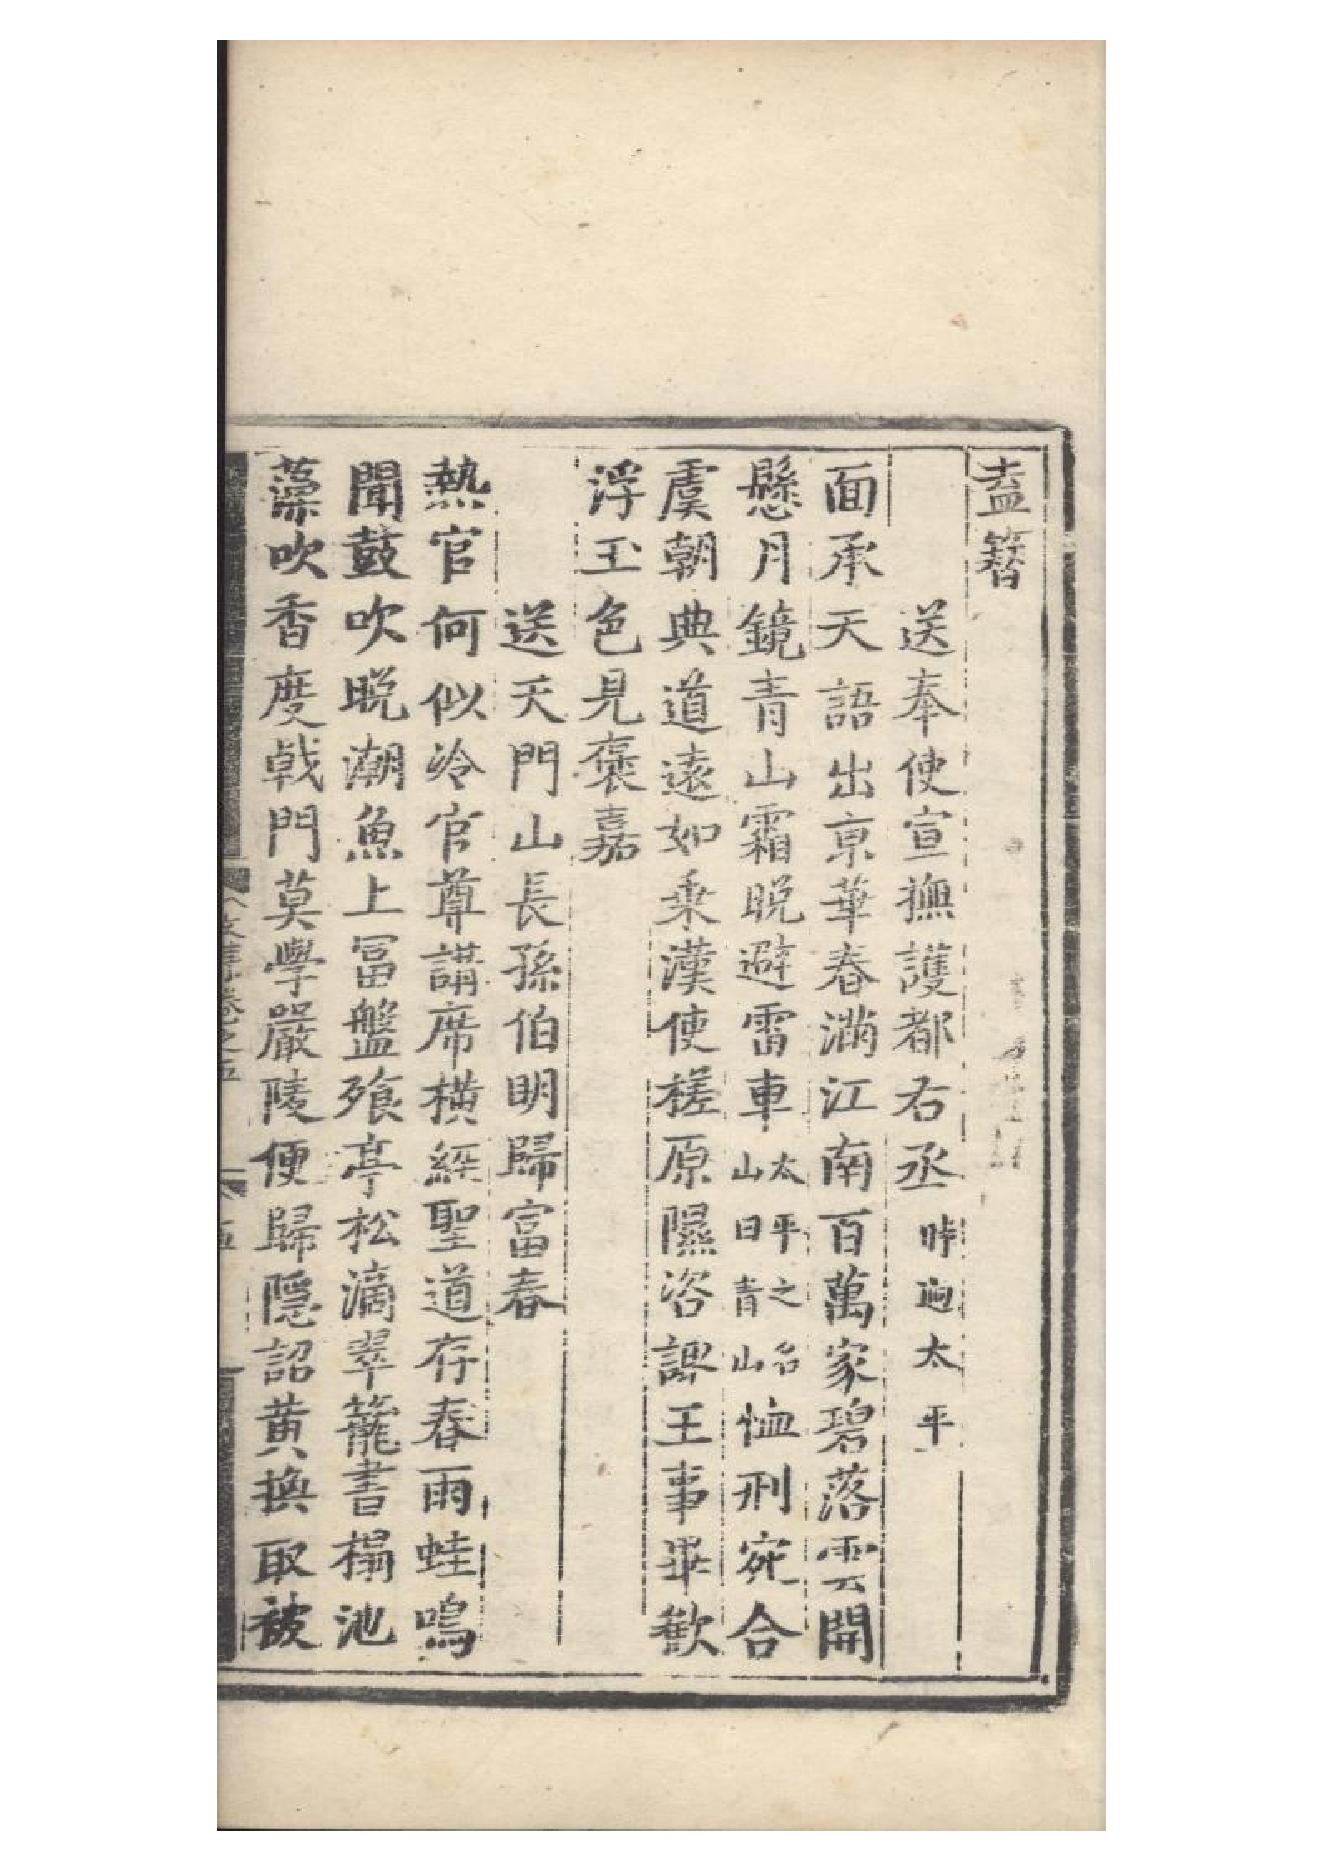 盍簪
送奉使宣撫護都右丞時迴太平
面承天語出京華春滿江南百萬家碧落雲開
懸月鏡青山霜晚避雷車太平之名山曰青山恤刑宛合
虞朝典道遠如乗漢使槎原隰咨諏王事畢歡
浮玉色見褒嘉
送天門山長孫伯明歸富春
熱官何似冷官尊講席橫經聖道存春雨蛙鳴
聞鼓吹晚潮魚上冨盤飱亭松滴翠籠書榻池
藻吹香度戟門莫學嚴陵便歸隱詔黄換取被
卷之五
五